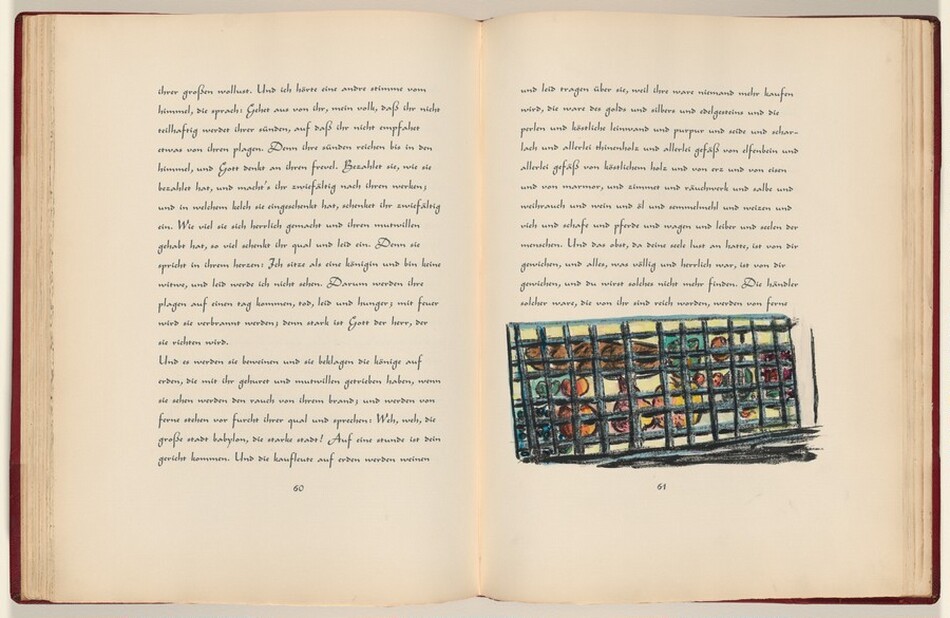 ihrer großen wollust. Und ich hörte eine andre stimme vom
himmel, die sprach: Gehet aus von ihr, mein volk, daß ihr nicht
teilhaftig werdet ihrer sünden, auf daß ihr nicht empfahet
etwas von ihren plagen. Denn ihre sünden reichen bis in den
himmel, und Gott denkt an ihren frevel. Bezahlet sie, wie sie
bezahlet hat, und macht's ihr zwiefältig nach ihren werken;
und in welchem kelch sie eingeschenkt hat, schenket ihr zwiefältig
ein. Wie viel sie sich herrlich gemacht und ihren mutwillen
gehabt hat, so viel schenkt ihr qual und leid ein. Denn sie
spricht in ihrem herzen: Ich sitze als eine königin und bin keine
witwe, und leid werde ich nicht sehen. Darum werden ihre
plagen auf einen tag kommen, tod, leid und hunger; mit feuer
wird sie verbrannt werden; denn stark ist Gott der herr, der
sie richten wird.
Und es werden sie beweinen und sie beklagen die könige auf
erden, die mit ihr gehuret und mutwillen getrieben haben, wenn
sie sehen werden den rauch von ihrem brand; und werden von
ferne stehen vor furcht ihrer qual und sprechen: Weh, weh, die
große stadt babylon, die starke stadt! Auf eine stunde ist dein
gericht kommen. Und die kaufleute auf erden werden weinen
60
und leid tragen über sie, weil ihre ware niemand mehr kaufen
wird, die ware des golds und silbers und edelgesteins und die
perlen und köstliche leinwand und purpur und seide und schar-
lach und allerlei thinenholz und allerlei gefäß von elfenbein und
allerlei gefäß von köstlichem holz und von erz und von eisen
und von marmor, und zimmet und räuchwerk und salbe und
weihrauch und wein und öl und semmelmehl und weizen und
vieh und schafe und pferde und wagen und leiber und seelen der
menschen. Und das obst, da deine seele lust an hatte, ist von dir
gewichen, und alles, was völlig und herrlich war, ist von dir
gewichen, und du wirst solches nicht mehr finden. Die händler
solcher ware, die von ihr sind reich worden, werden von ferne
61